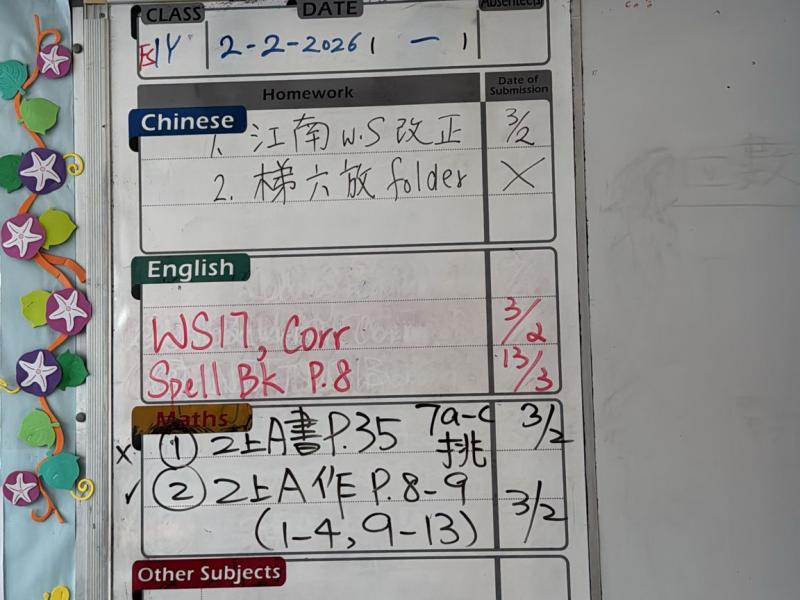 CLASS DATE Absentee(s)
1Y 2-2-2026 ( 一 )
Homework Date of Submission
Chinese
1. 江南 W.S 改正 3/2
2. 梯六放 folder ×
English
WS17, Corr 3/2
Spell Bk P.8 13/3
Maths
× ① 2上A書P.35 7a-c 挑 3/2
✓ ② 2上A作 P.8-9 3/2
(1-4, 9-13)
Other Subjects